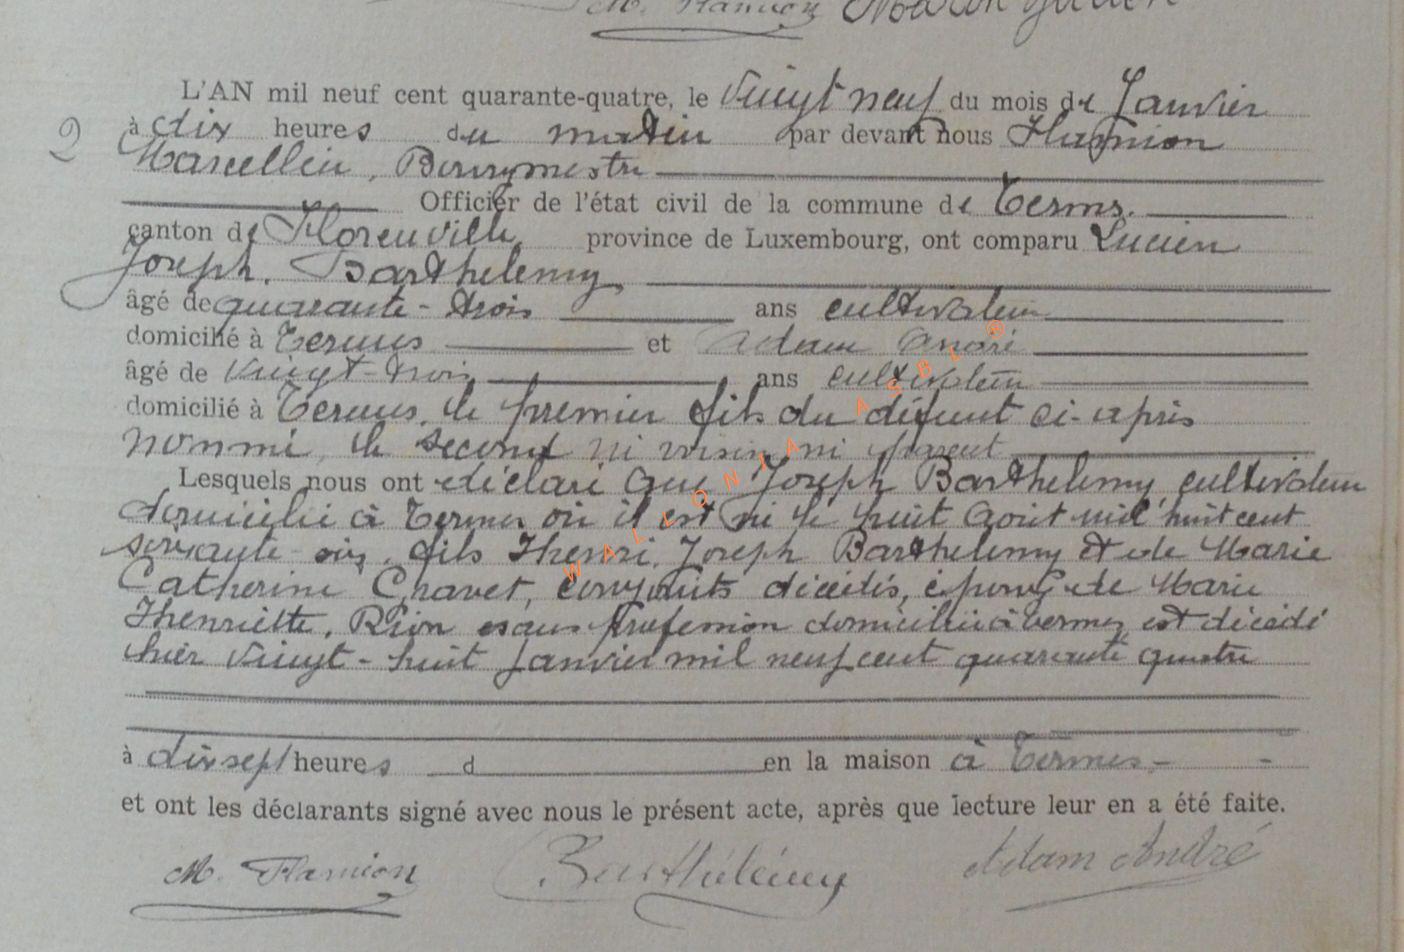 M. Flamion
L'AN mil neuf cent quarante-quatre, le vingt neuf du mois de Janvier
2
à dix heures du matin par devant nous Flamion
Marcellin, Bourgmestre
Officier de l'état civil de la commune de Termes.
canton de Florenville, province de Luxembourg, ont comparu Lucien
Joseph, Barthelemy,
âgé de quarante-trois ans cultivateur
domicilié à Termes et Adam André
âgé de vingt-trois ans cultivateur
domicilié à Termes, le premier fils du défunt ci-après
nommé, le second ni voisin ni parent
Lesquels nous ont déclaré que Joseph Barthelemy, cultivateur
domicilié à Termes où il est né le huit Août mil huit cent
soixante-six, fils Henri, Joseph Barthelemy et de Marie
Catherine Chavet, conjoints décédés, époux de Marie
Henriette, Rion sans profession domiciliée à Termes, est décédé
hier vingt-huit Janvier mil neuf cent quarante quatre
à dix sept heures d en la maison à Termes.-
et ont les déclarants signé avec nous le présent acte, après que lecture leur en a été faite.
M. Flamion Barthélémy Adam André
WALLONIA ASBL ®